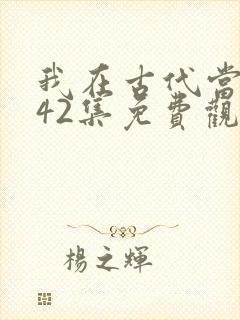 我在古代當
42集免費觀
楊之輝